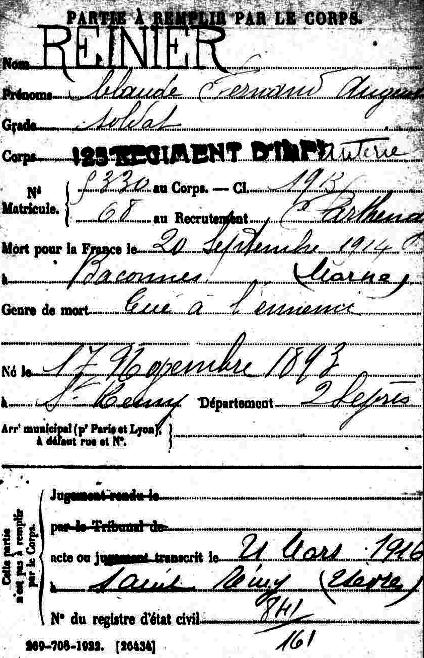 PARTIE À REMPLIR PAR LE CORPS.
Nom REINIER
Prénoms Claude Fernand August
Grade soldat
Corps 125 REGIMENT D'INFanterie
N° Matricule. 5330 au Corps. — Cl. 1913
68 au Recrutement Parthenay
Mort pour la France le 20 Septembre 1914
à Baconnes (Marne)
Genre de mort Tué à l'ennemi
Né le 17 Novembre 1893
à St Remy Département 2 Sèvres
Arrt municipal (pr Paris et Lyon),
à défaut rue et N°.
Cette partie n'est pas à remplir par le Corps.
Jugement rendu le
par le Tribunal de
acte ou jugement transcrit le 21 Mars 1916
à Saint Rémy
N° du registre d'état civil 841/161
269-708-1922. [26434]